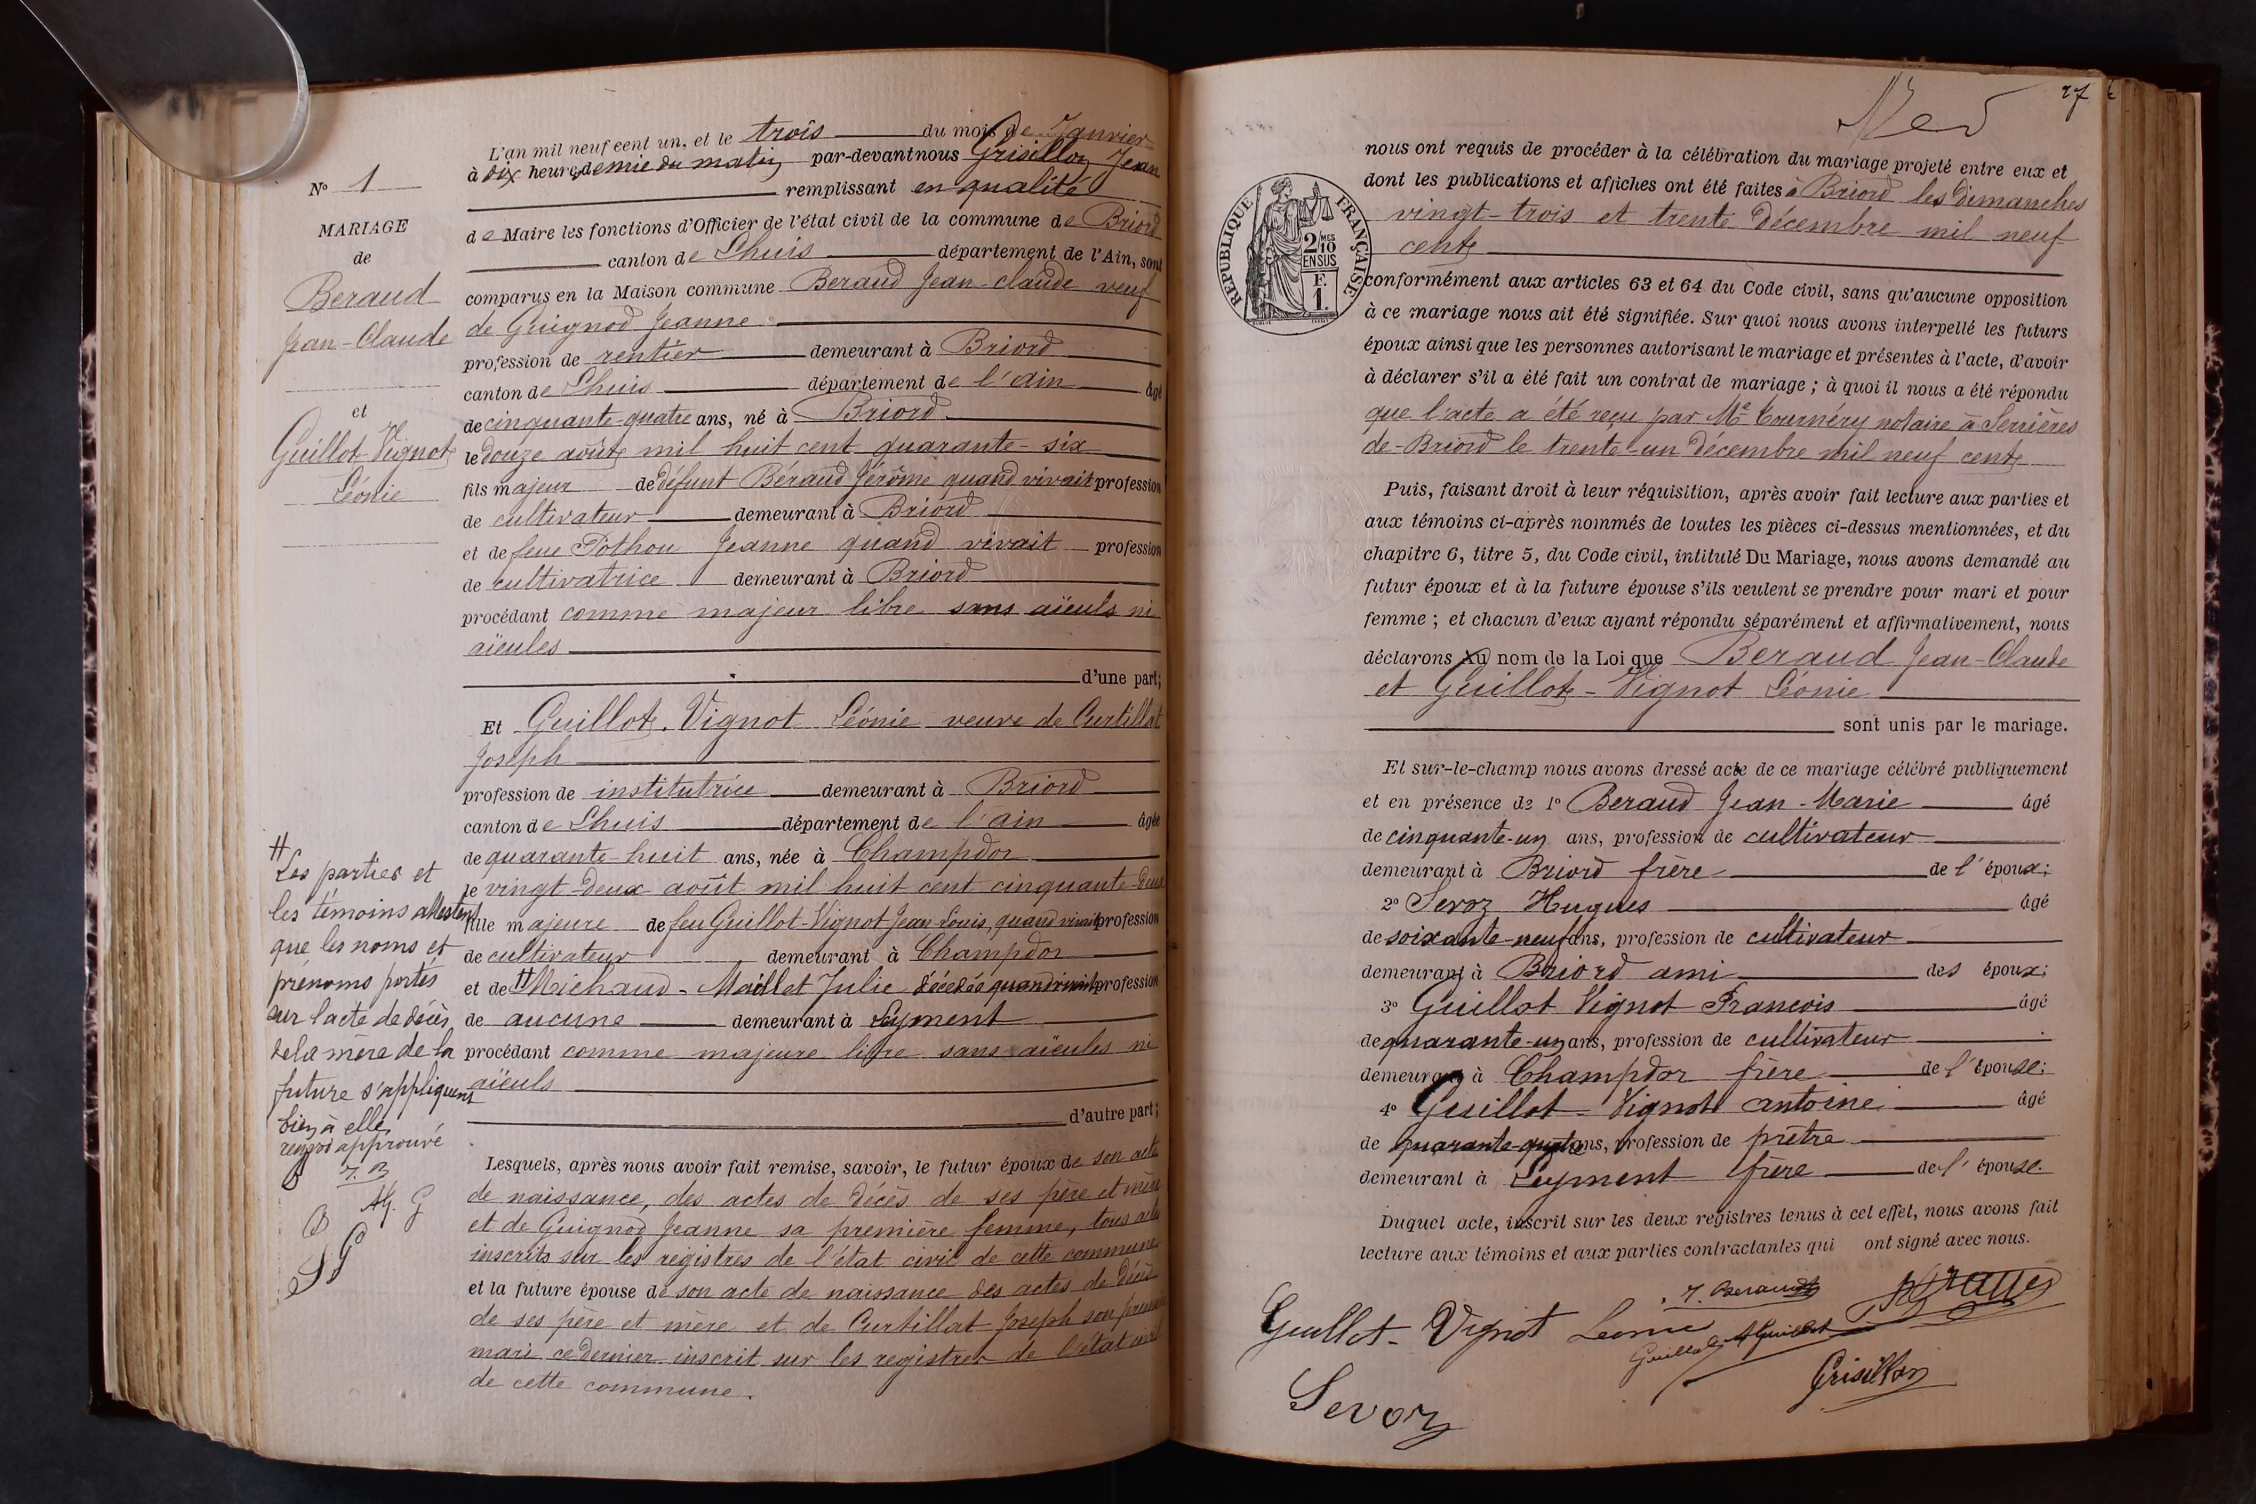 N° 1
MARIAGE
de
Beraud
Jean-Claude
et
Guillot-Vignot
Léonie
L'an mil neuf cent un, et le trois du mois de Janvier
à dix heures demie du matin par-devant nous Grisillon Jean
remplissant en qualité
de Maire les fonctions d'Officier de l'état civil de la commune de Briord
canton de Lhuis département de l'Ain, sont
comparus en la Maison commune Beraud Jean-claude veuf
de Guignod Jeanne
profession de rentier demeurant à Briord
canton de Lhuis département de l'ain âgé
de cinquante-quatre ans, né à Briord
le douze août mil huit cent quarante-six
fils majeur de défunt Béraud Jérôme quand vivait profession
de cultivateur demeurant à Briord
et de feue Pothou Jeanne quand vivait profession
de cultivatrice demeurant à Briord
procédant comme majeur libre sans aïeuls ni
aïeules
d'une part;
Et Guillot-Vignot Léonie veuve de Curtillat
Joseph
profession de institutrice demeurant à Briord
canton de Lhuis département de l'ain âgée
de quarante-huit ans, née à Champdor
le vingt-deux août mil huit cent cinquante-deux
fille majeure de feu Guillot-Vignot Jean Louis, quand vivait profession
de cultivateur demeurant à Champdor
et de # Michaud-Maillet Julie décédée quand vivait profession
de aucune demeurant à Leyment
procédant comme majeure libre sans aïeules ni
aïeuls
d'autre part;
# Les parties et
les témoins attestent
que les noms et
prénoms portés
sur l'acte de décès
de la mère de la
future s'appliquent
bien à elle
renvoi approuvé
J. B
G
Lesquels, après nous avoir fait remise, savoir, le futur époux de son acte
de naissance, des actes de décès de ses père et mère
et de Guignod Jeanne sa première femme, tous
inscrits sur les registres de l'état civil de cette commune
et la future épouse de son acte de naissance des actes de décès
de ses père et mère et de Curtillat Joseph son premier
mari ce dernier inscrit sur les registres de l'état civil
de cette commune.
27
REPUBLIQUE FRANÇAISE
2/10MES
EN SUS
F.
1.
nous ont requis de procéder à la célébration du mariage projeté entre eux et
dont les publications et affiches ont été faites à Briord les dimanches
vingt-trois et trente décembre mil neuf
cent
conformément aux articles 63 et 64 du Code civil, sans qu'aucune opposition
à ce mariage nous ait été signifiée. Sur quoi nous avons interpellé les futurs
époux ainsi que les personnes autorisant le mariage et présentes à l'acte, d'avoir
à déclarer s'il a été fait un contrat de mariage; à quoi il nous a été répondu
que l'acte a été reçu par Me Tournéry notaire à Serrières
de-Briord le trente-un décembre mil neuf cent
Puis, faisant droit à leur réquisition, après avoir fait lecture aux parties et
aux témoins ci-après nommés de toutes les pièces ci-dessus mentionnées, et du
chapitre 6, titre 5, du Code civil, intitulé Du Mariage, nous avons demandé au
futur époux et à la future épouse s'ils veulent se prendre pour mari et pour
femme; et chacun d'eux ayant répondu séparément et affirmativement, nous
déclarons au nom de la Loi que Beraud Jean-Claude
et Guillot-Vignot Léonie
sont unis par le mariage.
Et sur-le-champ nous avons dressé acte de ce mariage célébré publiquement
et en présence de 1° Beraud Jean-Marie âgé
de cinquante-un ans, profession de cultivateur
demeurant à Briord frère de l'époux;
2° Sevoz Hugues âgé
de soixante-neuf ans, profession de cultivateur
demeurant à Briord ami des époux;
3° Guillot Vignot Francois âgé
de quarante-un ans, profession de cultivateur
demeurant à Champdor frère de l'épouse;
4° Guillot-Vignot antoine âgé
de quarante-quatre ans, profession de prêtre
demeurant à Leyment frère de l'épouse.
Duquel acte, inscrit sur les deux registres tenus à cet effet, nous avons fait
lecture aux témoins et aux parties contractantes qui ont signé avec nous.
J. Beraud
Guillot-Vignot Leonie
Guillot A Guillot
Grisillon
Sevoz